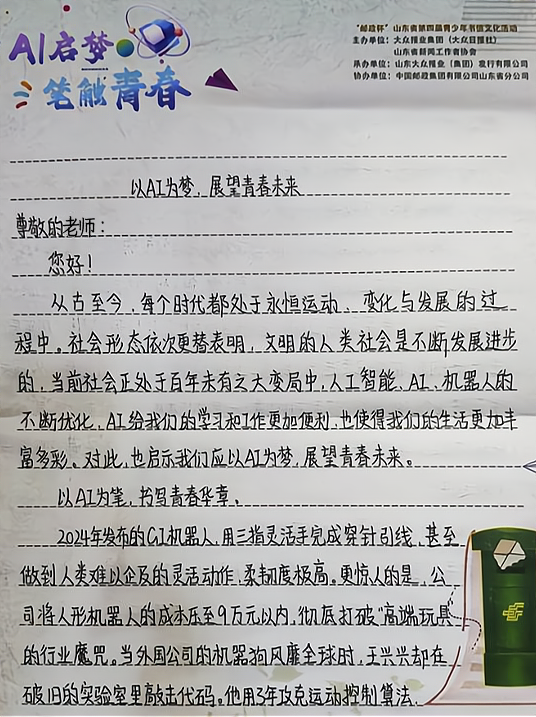 AI启梦
笔触青春
"邮政杯"山东省第四届青少年书信文化活动
主办单位：大众报业集团（大众日报社）
山东省新闻工作者协会
承办单位：山东大众报业（集团）发行有限公司
协办单位：中国邮政集团有限公司山东省分公司
以AI为梦，展望青春未来
尊敬的老师：
您好！
从古至今，每个时代都处于永恒运动、变化与发展的过
程中。社会形态依次更替表明，文明的人类社会是不断发展进步
的，当前社会正处于百年未有之大变局中，人工智能、AI、机器人的
不断优化，AI给我们的学习和工作更加便利，也使得我们的生活更加丰
富多彩。对此，也启示我们应以AI为梦，展望青春未来。
以AI为笔，书写青春华章。
2024年发布的G1机器人，用三指灵活手完成穿针引线，甚至
做到人类难以企及的灵活动作，柔韧度极高。更惊人的是，公
司将人形机器人的成本压至9万元以内，彻底打破"高端玩具"
的行业魔咒。当外国公司的机器狗风靡全球时，王兴兴却在
破旧的实验室里敲击代码。他用3年攻克运动控制算法，